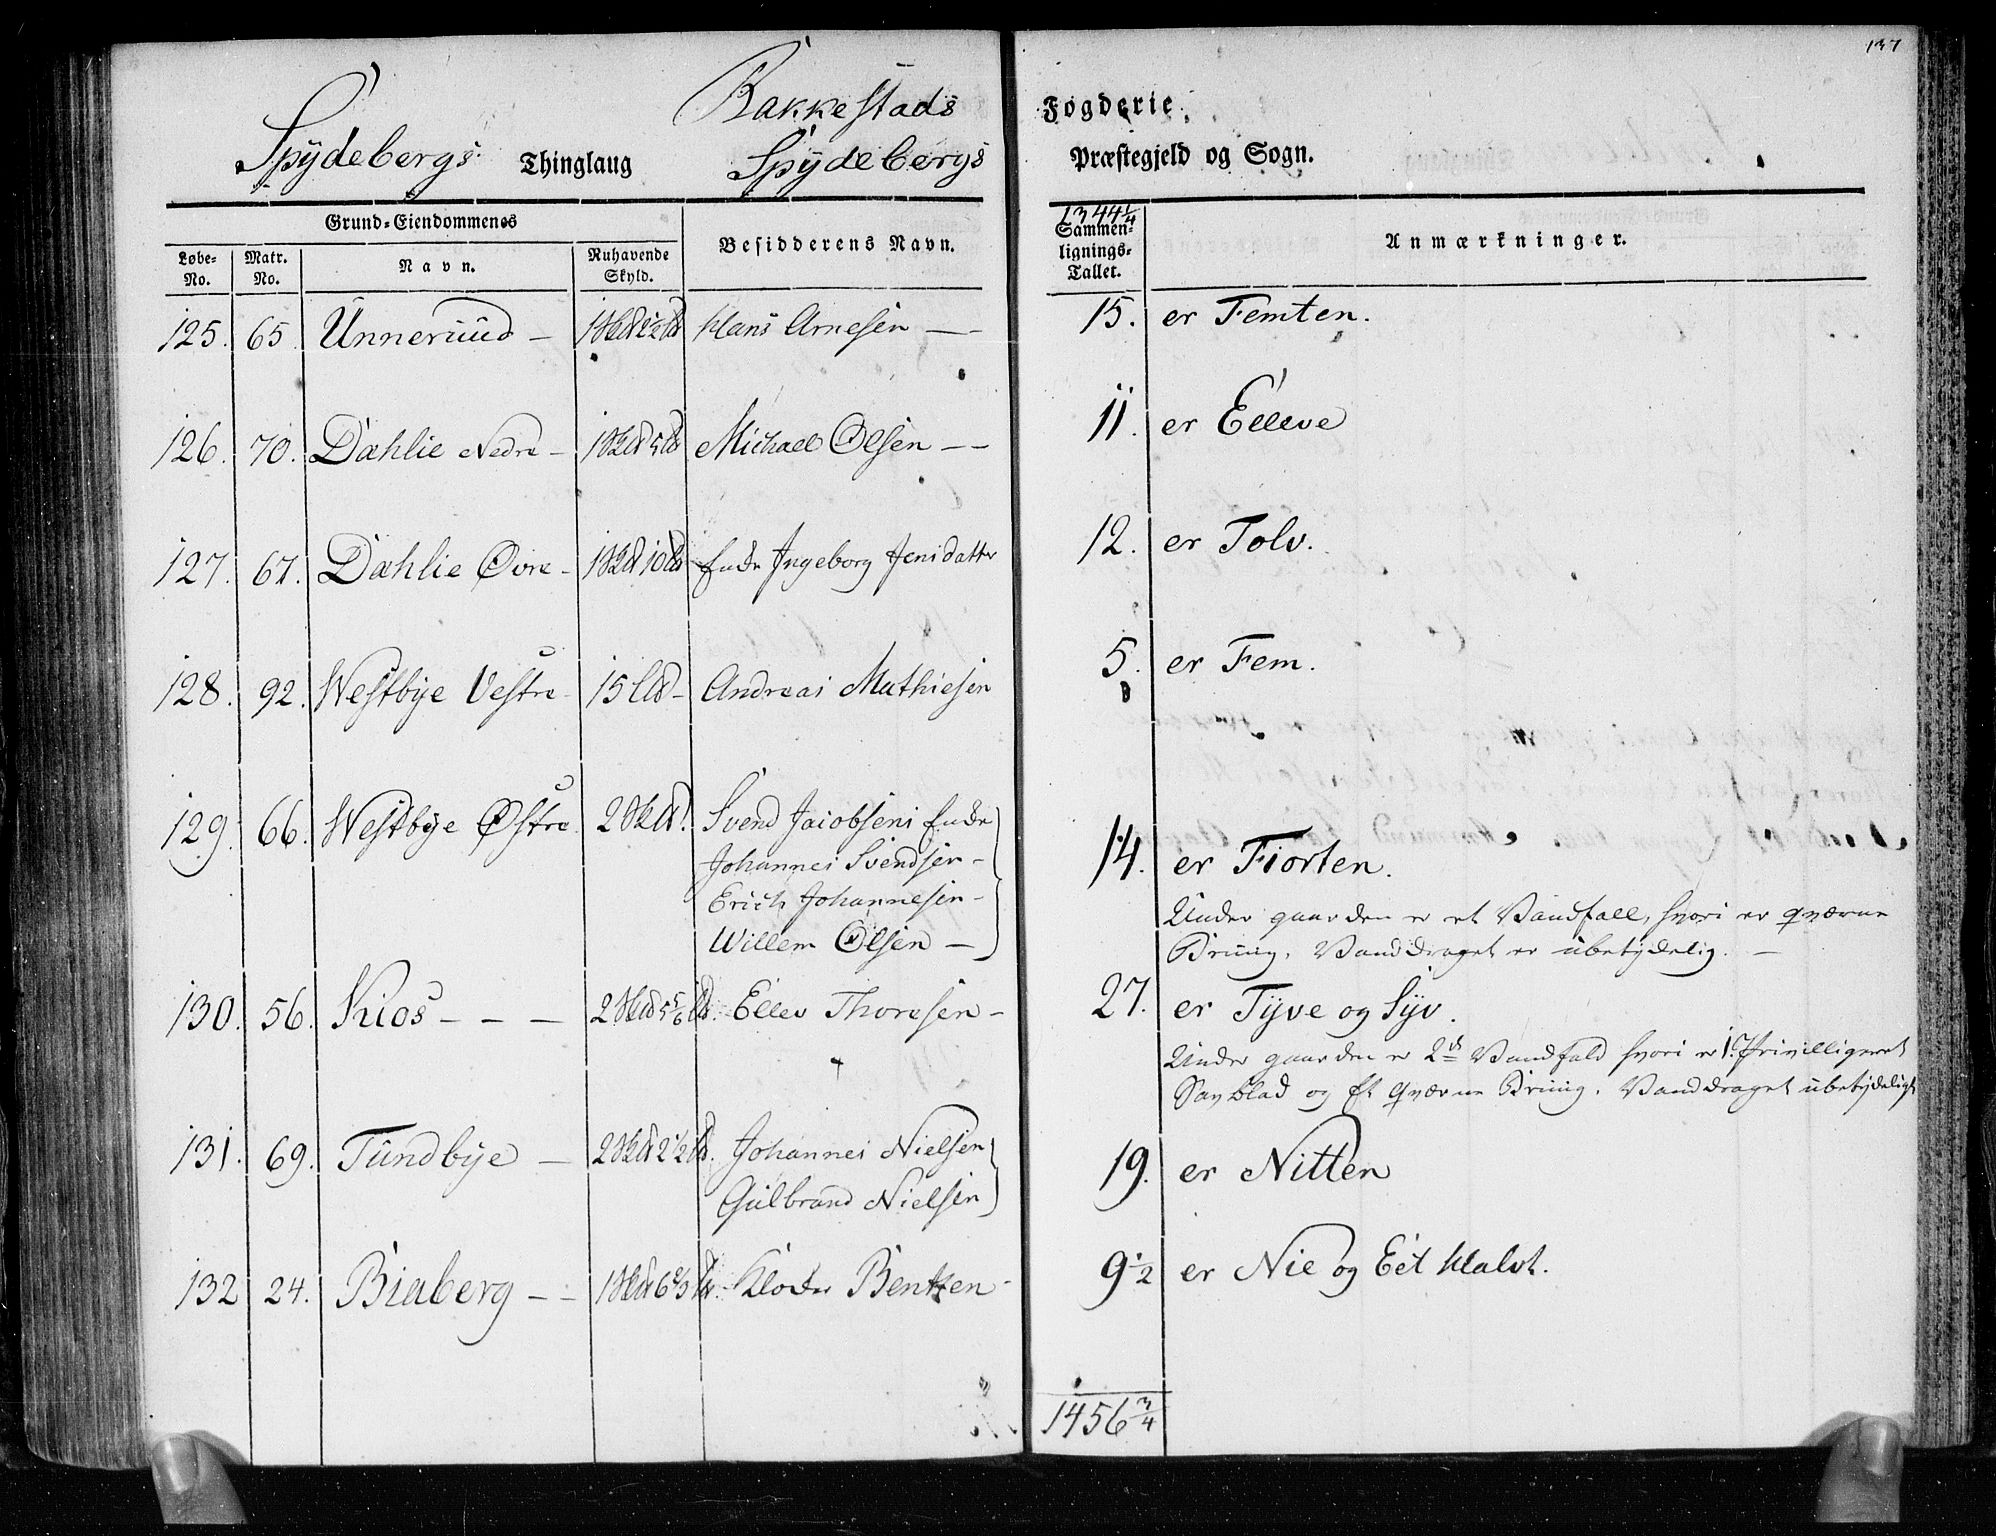 137
Rakkestads Fogderie.
Spydebergs Thinglaug Spydebergs Præstegjeld og Sogn.
Grund-Eiendommenes
Løbe-No. Matr. No. Navn. Nuhavende Skyld. Besidderens Navn. Sammenlignings-Tallet. Anmærkninger.
1344 1/4
125. 65 Unneruud — Hans Arnesen — 15. er Femten.
126. 70. Dæhlie Nedre — Michael Olsen — — 11. er Elleve
127. 67. Dæhlie Øvre — Enke Ingeborg Jensdatter 12. er Tolv.
128. 92. Westbye Vestre 15 Andreas Mathiesen 5. er Fem.
129. 66. Westbye Østre Svend Jacobsens Enke
Johannes Svendsen —
Erich Johannesen —
Willem Olsen —
14. er Fiorten.
Under gaarden er et Vandfall, hvori er qværne
Brug. Vanddraget er ubetydelig. —
130. 56. Kios — — — Ellev Thoresen — 27. er Tyve og Syv.
Under gaarden er 2de Vandfald hvori er 1. Privilligeret
Savblad og Et qværne Brug. Vanddraget ubetydeligt
131. 69. Tundbye — Johannes Nielsen
Gulbrand Nielsen
19. er Nitten
132 24. Biaberg — — Bentzen 9 1/2 er Nie og Eet Halvt.
1456 3/4